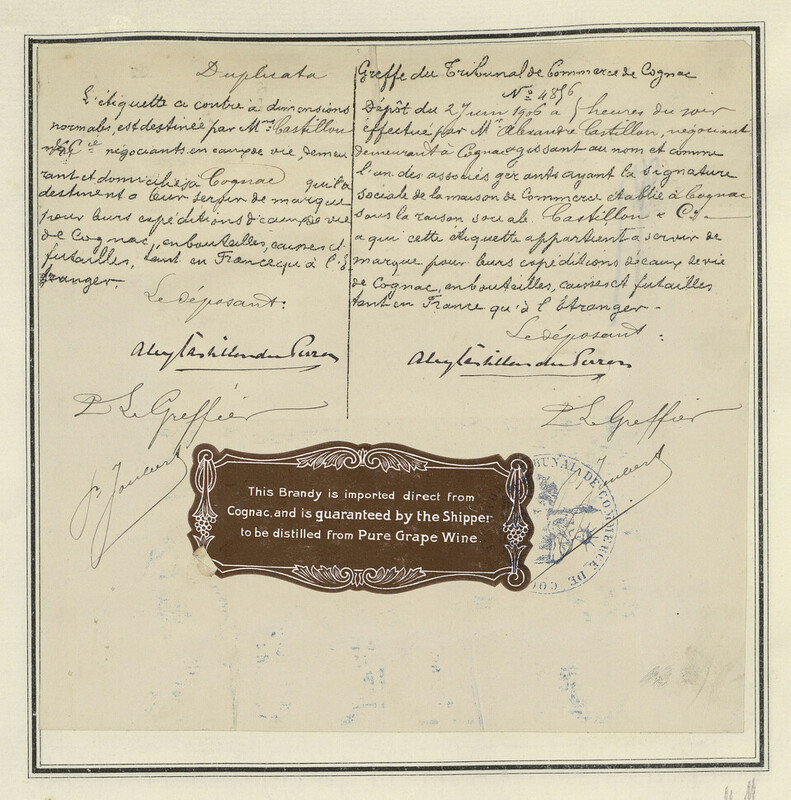 Duplicata
L'étiquette ci contre à dimensions
normales, est destinée par Mrs Castillon
& Cie négociants en eaux de vie, demeu
rant et domiciliés à Cognac qu'ils
destinent à leur servir de marque
pour leurs expéditions d'eaux de vie
de Cognac, en bouteilles, caisses et
futailles, tant en France qu'à l'É
tranger.
Le déposant:
Alex Castillon du Perron
P Le Greffier
Joubert
Greffe du Tribunal de Commerce de Cognac
No 4856
Dépôt du 27 juin 1906 à 5 heures du soir
effectué par Mr Alexandre Castillon, négociant
demeurant à Cognac agissant au nom et comme
l'un des associés gérants ayant la signature
sociale de la maison de Commerce établie à Cognac
sous la raison sociale Castillon & Cie
à qui cette étiquette appartient à servir de
marque pour leurs expéditions d'eaux de vie
de Cognac, en bouteilles, caisses et futailles
tant en France qu'à l'Étranger -
Le déposant:
Alex Castillon du Perron
P Le Greffier
Joubert
This Brandy is imported direct from
Cognac, and is guaranteed by the Shipper
to be distilled from Pure Grape Wine.
TRIBUNAL DE COMMERCE DE